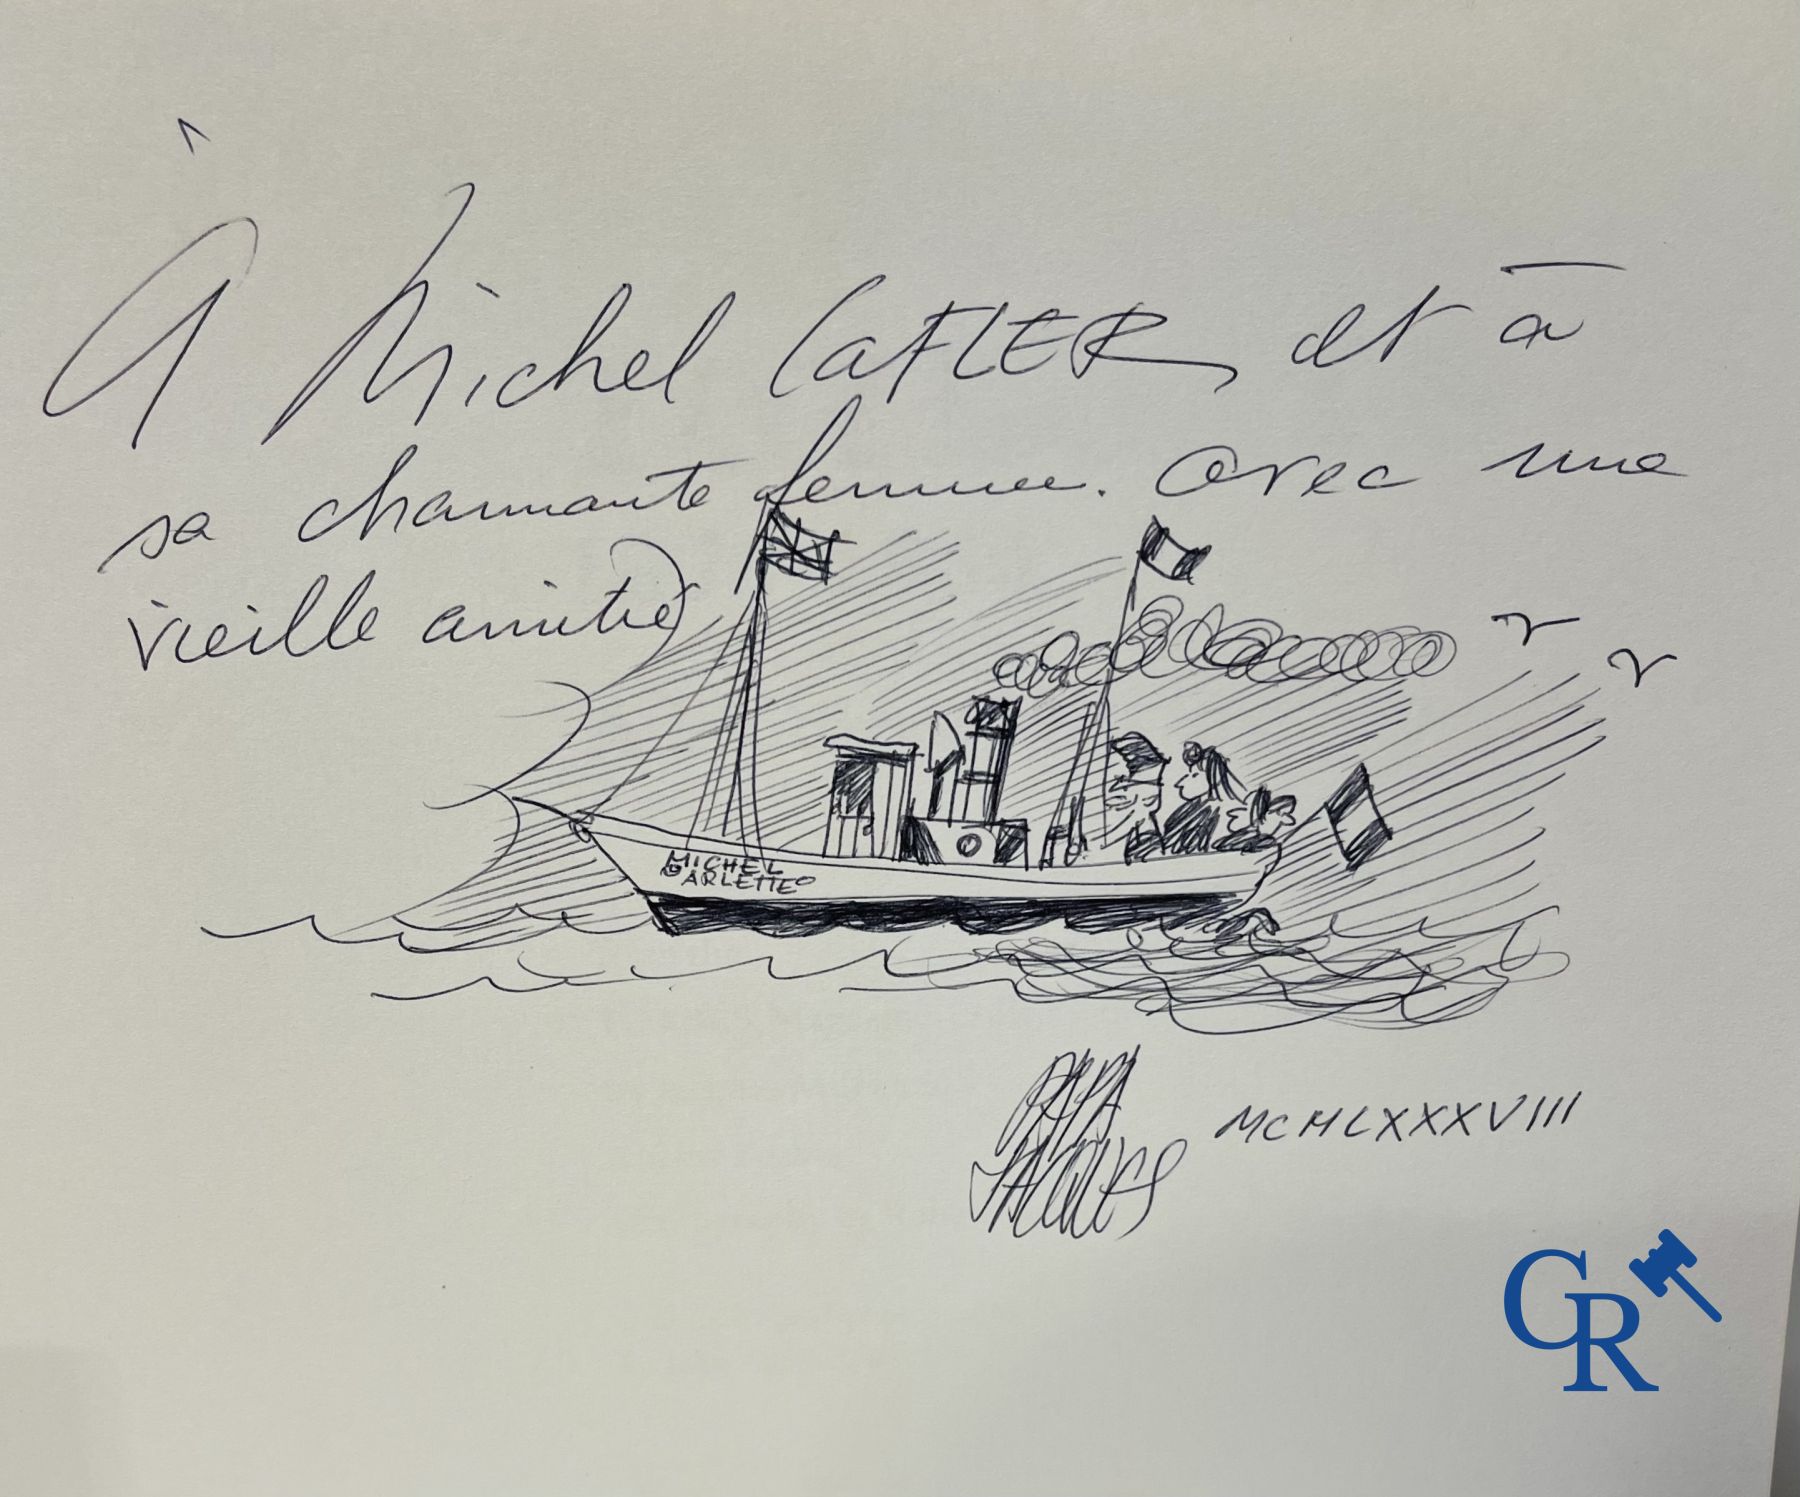 À Michel LaFLER, et à
sa charmante femme. avec une
vieille amitié
MICHEL
ARLETTE
PAPA
JACQUES
MCMLXXXVIII
GR